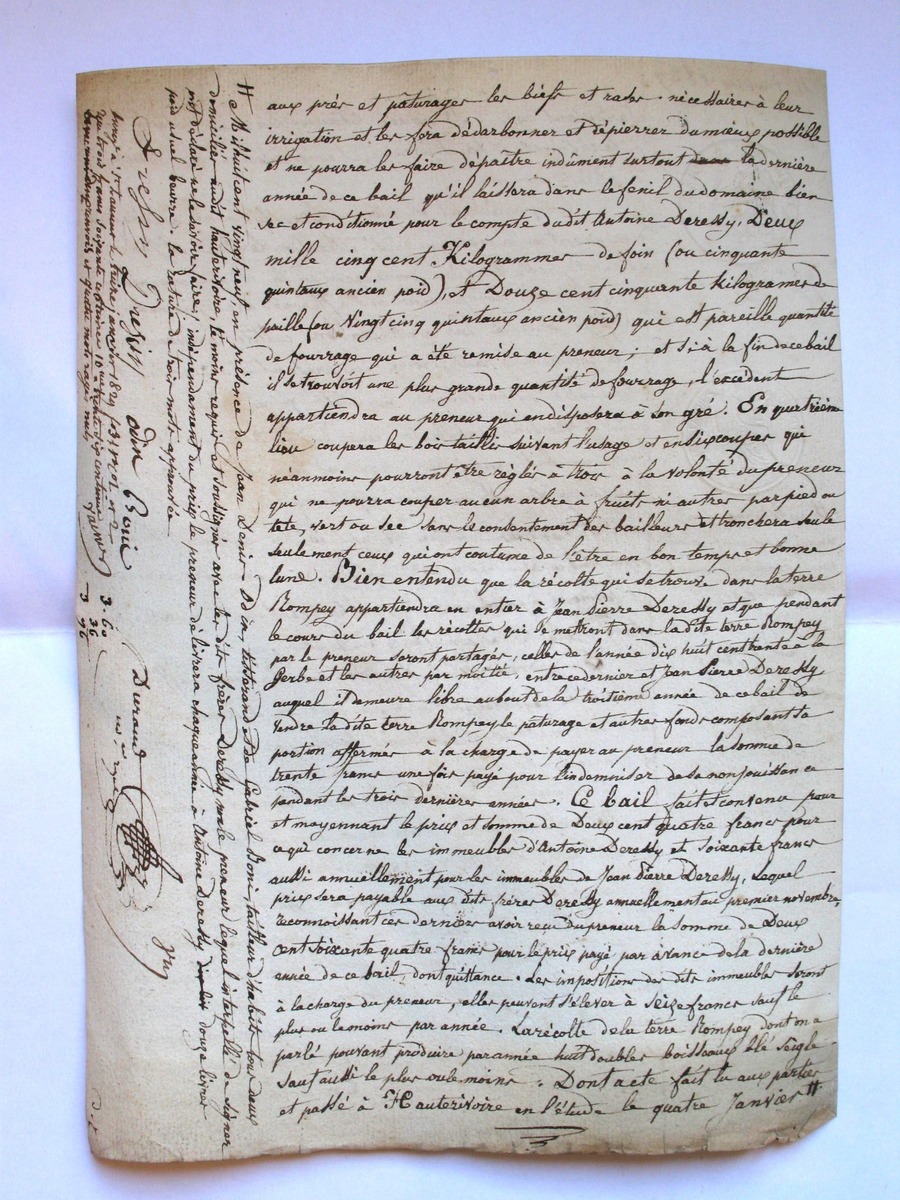 aux prés et pâturages les biefs et rases nécessaires à leur
irrigation et les fera dédarbonner et dépierrer du mieux possible
et ne pourra les faire dépaître indûment surtout dans la dernière
année de ce bail qu'il laissera dans le fenil du domaine bien
sec et conditionné pour le compte dudit Antoine Deressy, Deux
mille cinq cent Kilogrammes de foin (ou cinquante
quintaux ancien poid), et Douze cent cinquante kilogrames de
paille (ou Vingt cinq quintaux ancien poid) qui est pareille quantité
de fourrage qui a été remise au preneur; et si à la fin de ce bail
il se trouvoit une plus grande quantité de fourrage, l'excédent
appartiendra au preneur qui en disposera à son gré. En quatrième
lieu coupera les bois taillis suivant l'usage et en six coupes qui
néanmoins pourront être réglés à trois à la volonté du preneur
qui ne pourra couper aucun arbre à fruits ni autres par pied ou
tete, vert ou sec sans le consentement des bailleurs et tronchera seule
seulement ceux qui ont coutume de l'être en bon temps et bonne
lune. Bien entendu que la récolte qui se trouve dans la terre
Rompey appartiendra en entier à Jean Pierre Deressy et que pendant
le cours du bail les récoltes qui se mettront dans la dite terre Rompey
par le preneur seront partagés, celles de l'année dix huit cent trente à la
Gerbe et les autres par moitié, entre ce dernier et Jean Pierre Deressy
auquel il demeure libre au bout de la troisième année de ce bail de
vendre la dite terre Rompey le pâturage et autres fonds composant sa
portion affermés à la charge de payer au preneur la somme de
trente francs une fois payé pour l'indemniser de sa non jouissance
pendant les trois dernières années. Ce bail fait et convenu pour
et moyennant le prix et somme de Deux cent quatre francs pour
ce qui concerne les immeubles d'Antoine Deressy et soixante francs
aussi annuellement pour les immeubles de Jean Pierre Deressy, Lequel
prix sera payable aux dits frères Deressy annuellement au premier novembre,
reconnoissant ces derniers avoir reçu du preneur la somme de Deux
cent soixante quatre francs pour le prix payé par avance de la dernière
année de ce bail, dont quittance. Les impositions des dits immeubles seront
à la charge du preneur, elles peuvent s'élever à Seize francs sauf le
plus ou le moins par année. La récolte de la terre Rompey dont on a
parlé pouvant produire par année huit doubles boisseaux blé seigle
sauf aussi le plus ou le moins. Dont acte fait lu aux parties
et passé à Hauterivoire en l'étude le quatre Janvier #
# Mil huit cent vingt neuf en présence de Jean Denis Odin, tisserand & de Gabriel Boni, tailleur d'habits tous deux
domiciliés audit hauterivoire, témoins requis et soussignés avec les dits frères Deressy non le preneur lequel interpellé de signer
mot déclaré ne le savoir faire; indépendament du prix le preneur délivrera chaque année à Antoine Deressy douze livres
poid usuel beurre. la rature de trois mots approuvée
odin Boni
Durand
3.60
36
3 96